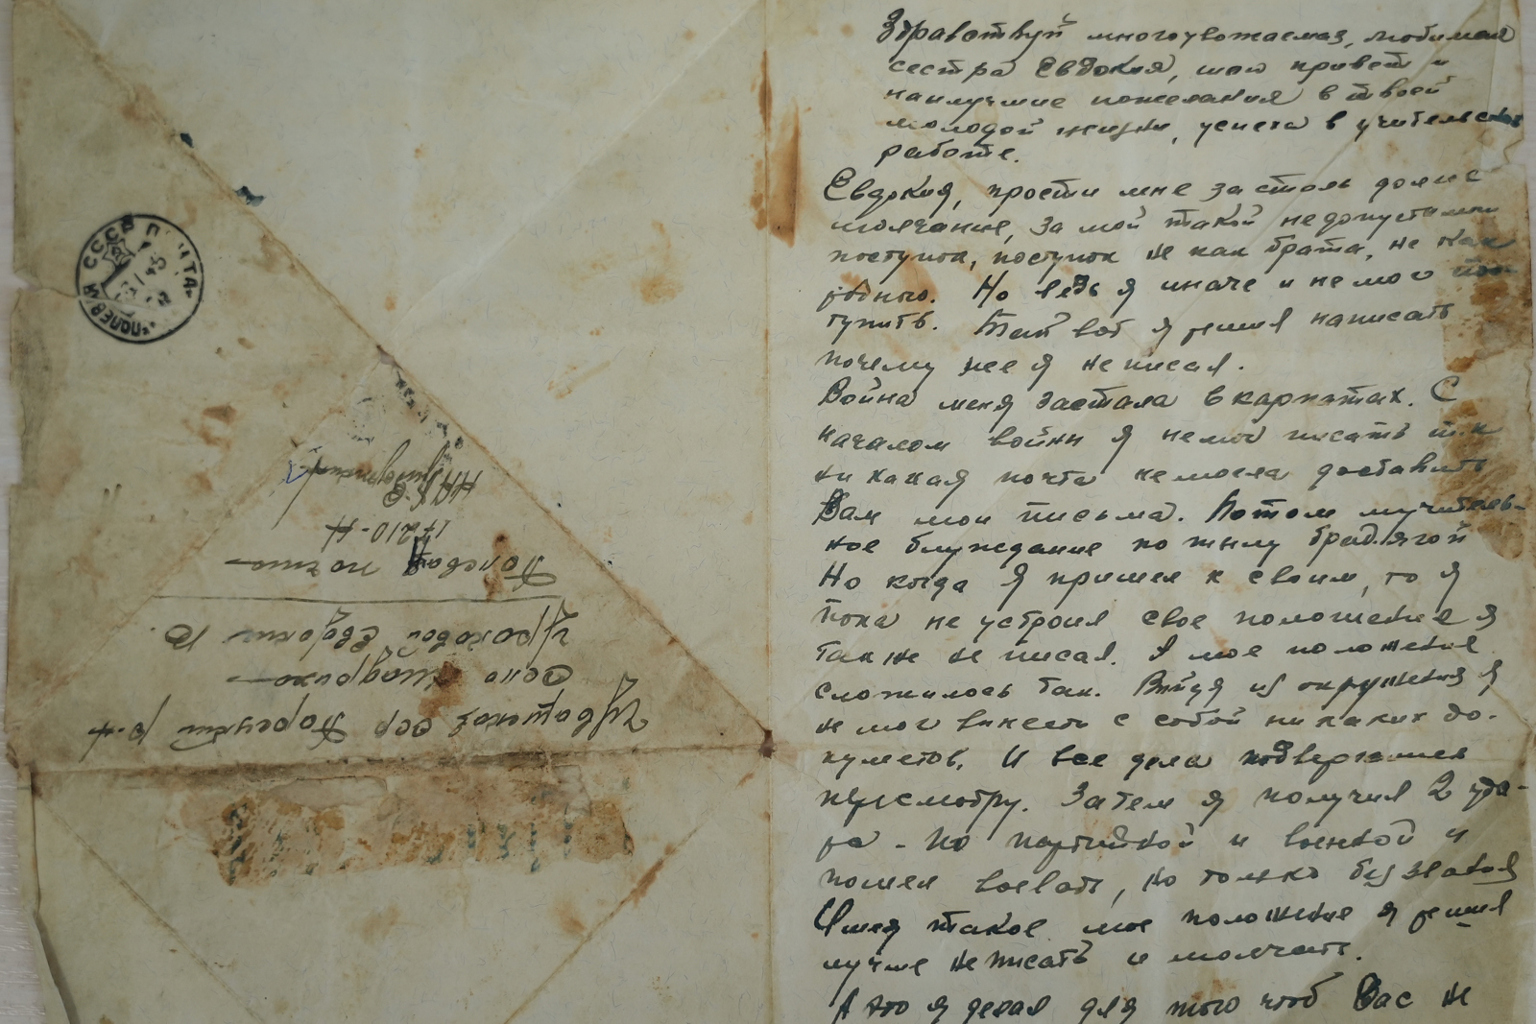 СССР ПОЧТА
ПОЛЕВАЯ
Чувашская ССР Порецкий р-н
село
Евдокии
Полевая почта
17210-Н
Здравствуй многоуважаемая, любимая
сестра Евдокия, шлю привет и
наилучшие пожелания в твоей
молодой жизни, успеха в учительской
работе.
Евдокия, прости мне за столь долгое
молчание, за мой такой недопустимый
поступок, поступок не как брата, не как
родного. Но ведь я иначе и не мог пос-
тупить. Так вот я решил написать
почему же я не писал.
Война меня застала в карпатах. С
началом войны я не мог писать т.к
никакая почта не могла доставить
Вам мои письма. Потом мучитель-
ное блуждание по тылу бродягой
Но когда я пришел к своим, то я
пока не устроил свое положение я
также не писал. А мое положение
сложилось так. Выйдя из окружения я
не мог вынести с собой никаких до-
куметов. И все дела подвергались
пересмотру. Затем я получил 2 уда-
ра - по партийной и военной и
пошел воевать, но только без звания
Имея такое мое положение я решил
лучше не писать и молчать.
А это я делал для того чтоб Вас не